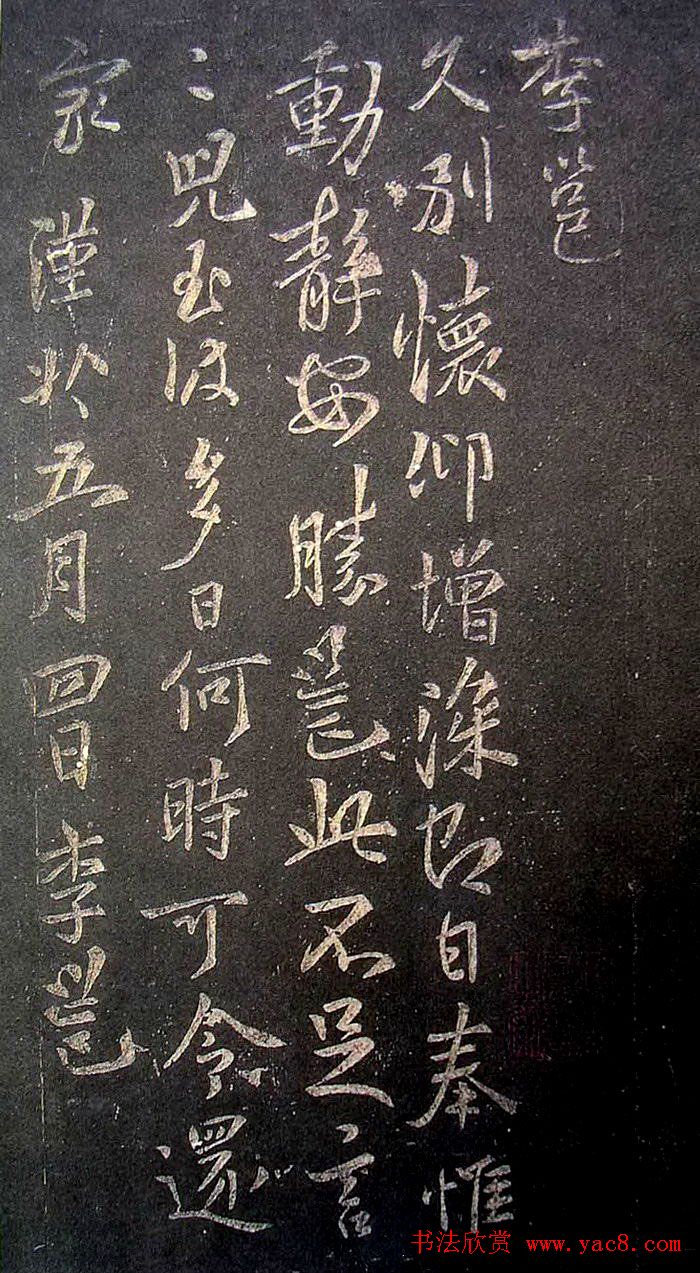 李邕
久別懷仰增深即日奉惟
動靜安勝邕此不足言
二兒至彼多日何時可令還
家謹於五月四日李邕
书法欣赏 www.yac8.com